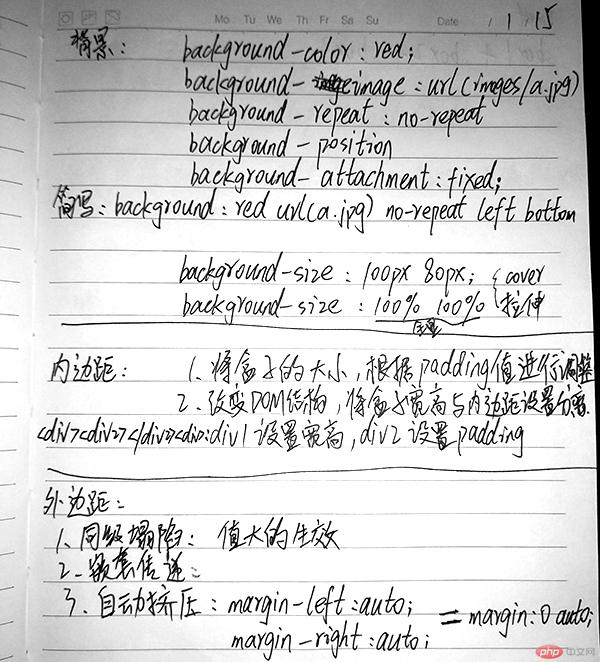 Mo Tu We Th Fr Sa Su Date / 1 / 15
背景： background-color : red;
background-image : url(images/a.jpg)
background-repeat : no-repeat
background-position
background-attachment : fixed;
简写：background : red url(a.jpg) no-repeat left bottom
background-size : 100px 80px; { cover
background-size : 100% 100% 拉伸
内边距： 1. 将盒子的大小，根据padding值进行调整
2. 改变DOM结构，将盒子宽高与内边距设置分离.
<div><div></div><div>:div1 设置宽高, div2 设置padding
外边距：
1. 同级塌陷： 值大的生效
2. 嵌套传递：
3. 自动挤压：margin-left:auto; = margin:0 auto;
margin-right:auto;
php 中文网